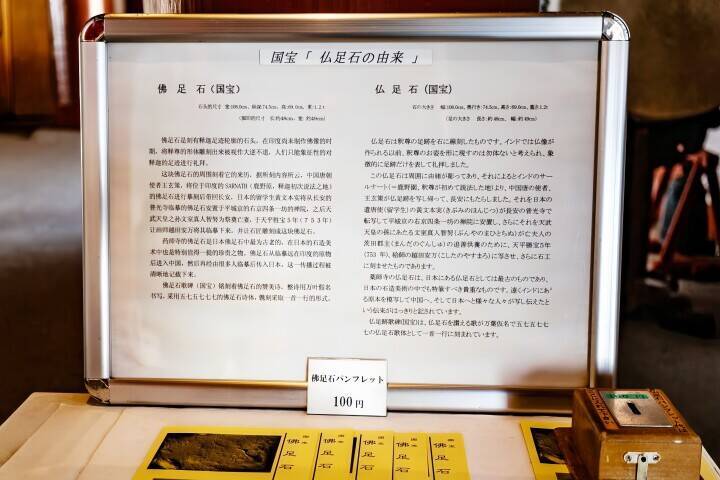 国宝「 仏足石の由来 」
佛 足 石（国宝）
石头的尺寸 宽:108.0cm, 纵深:74.5cm, 高:69.0m, 重:1.2ｔ
佛足石是刻有释迦足迹轮廓的石头。在印度尚未制作佛像的时
期，将释尊的形体雕刻出来被视作大逆不道，人们只能象征性的对
释迦的足迹进行礼拜。
这块佛足石的周围刻着它的来历，据所刻内容所云，中国唐朝
使者王玄策，将位于印度的 SARNATH（鹿野原，释迦初次说法之地）
的佛足石进行摹拓后带回长安，日本的留学生黄文本实将从长安的
普光寺临摹的佛足石安置于平城京的右京四条一坊的禅院，之后天
武天皇之孙文室真人智努为祭奠亡妻，于天平胜宝5年（753年）
让画师越田安万将其临摹下来，并让石匠雕刻成这块佛足石。
药师寺的佛足石是日本佛足石中最为古老的，在日本的石造美
术中也是特别值得一提的珍贵之物。佛足石从临摹远在印度的原物
后进入中国，然后再经由很多人临摹后传入日本，这一传播过程被
清晰地记载下来。
佛足石歌碑（国宝）铭刻着佛足石的赞美诗，整诗用万叶假名
书写，采用五七五七七七的佛足石诗体，镌刻采取一首一行的形式。
仏 足 石（国宝）
石の大きさ 幅:108.0cm, 奥行き:74.5cm, 高さ:69.0cm, 重さ1.2t
（足の大きさ 長さ:約 48cm, 幅:約 49cm）
仏足石は釈尊の足跡を石に雕刻したものです。インドでは仏像が
作られる以前、釈尊のお姿を形に現すのは勿体ないと考えられ、象
徴的に足跡だけを表して礼拝しました。
この仏足石は周囲に由緒が彫ってあり、それによるとインドのサー
ルナート（＝鹿野園、釈尊が初めて説法した地）より、中国唐の使者、
王玄策が仏足跡を写し帰って、長安にもたらしました。それを日本の
遣唐使（留学生）の黄文本実（きぶみのほんじつ）が長安の普光寺で転
写して平城京の右京四条一坊の禅院に安置し、さらにそれを天武
天皇の孫にあたる文室真人智努（ぶんやのまひとちぬ）が亡き夫人の
茨田郡主（まんだのぐんしゅ）の追善供養のために、天平勝宝5年
（753 年）、絵師の越田安万（こしだのやすまろ）に写させ、さらに石工
に刻ませたものであります。
薬師寺の仏足石は、日本にある仏足石としては最古のものであり、
日本の石造美術の中でも特筆すべき貴重なものです。遠くインドにあ
る原本を模写して中国へ、そして日本へと様々な人々が写し伝えたと
いう伝来がはっきりと記されています。
仏足跡歌碑（国宝）は、仏足石を讃える歌が万葉仮名で五七五七七
七の仏足石歌体として一首一行に刻まれています。
佛足石パンフレット
100円
国宝 佛足石
国宝 佛足石
国宝 佛足石
国宝 佛足石
国宝 佛足石